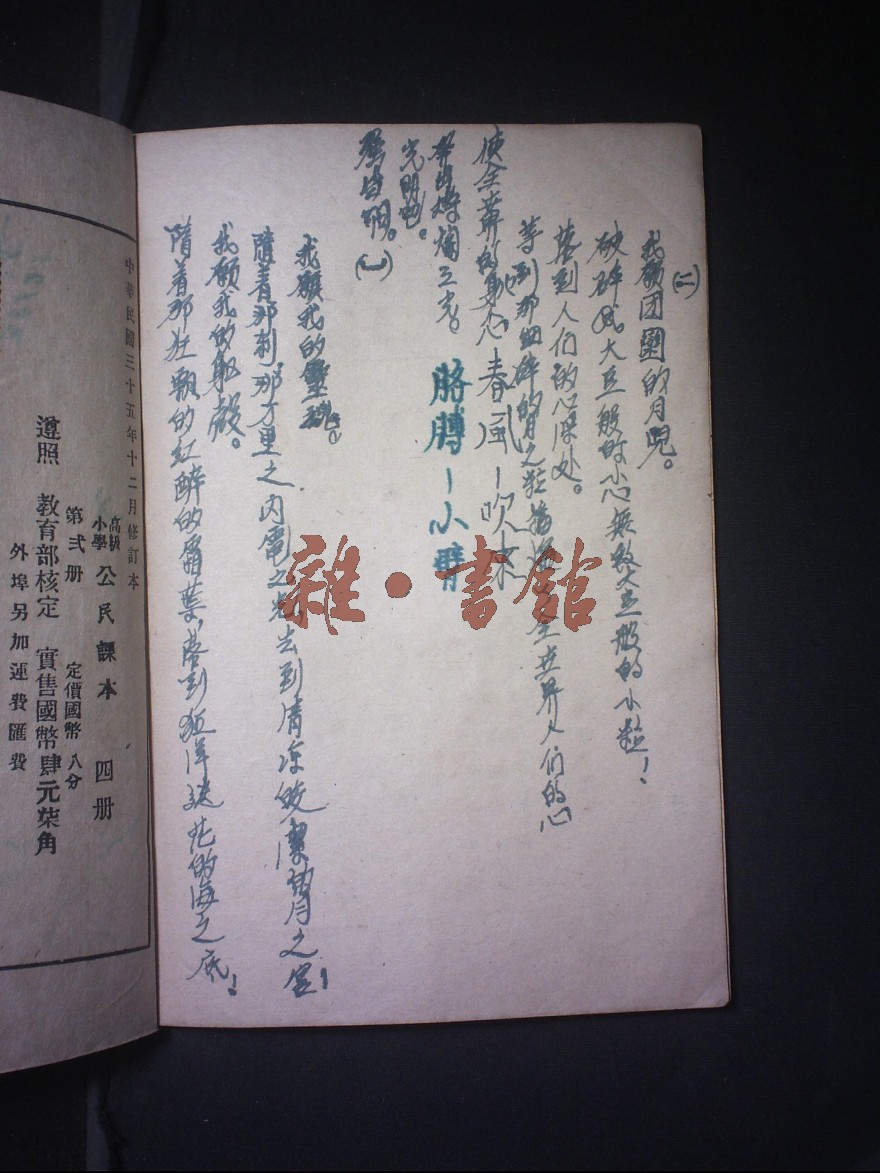 (二)
我願团圞的月兒。
破碎成大豆般的小心無数大豆般的小粒！
落到人们的心深处。
等到那细碎的月之粒普遍全世界人们的心
使全世界的身心
春－風－吹來
胳膊－小臂
光明吧。
(一)
我願我的靈魂。
隨着那刹那万里之内電之光去到清凉皎潔的月之宫！
我願我的軀殼。
隋着那狂飄的紅醉的霜葉，落到狂洋的海之底！
雜·書館
中華民國三十五年十二月修訂本
高級小學 公民課本 四册
第弍册 定價國幣八分
遵照 教育部核定 實售國幣肆元柒角
外埠另加運費匯費